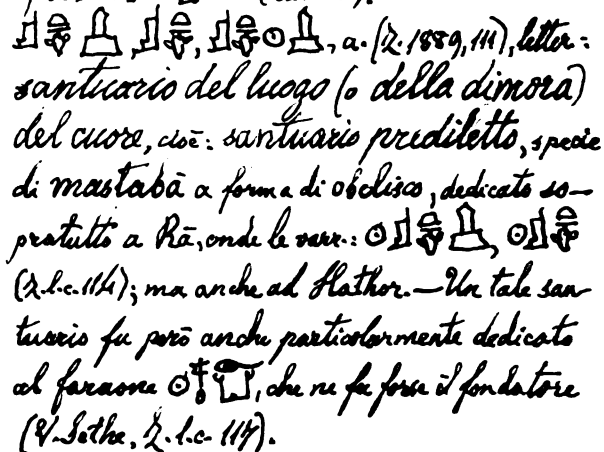 , a. (Z. 1889, 111), letter:
santuario del luogo (o della dimora)
del cuore, cioè: santuario prediletto, specie
di mastabā a forma di obelisco, dedicato so-
pratutto a Rā, onde le varr.:
(Z. l. c. 114); ma anche ad Hathor. — Un tale san
tuario fu però anche particolarmente dedicato
al faraone , che ne fu forse il fondatore
(V. Sethe, Z. l. c. 117).